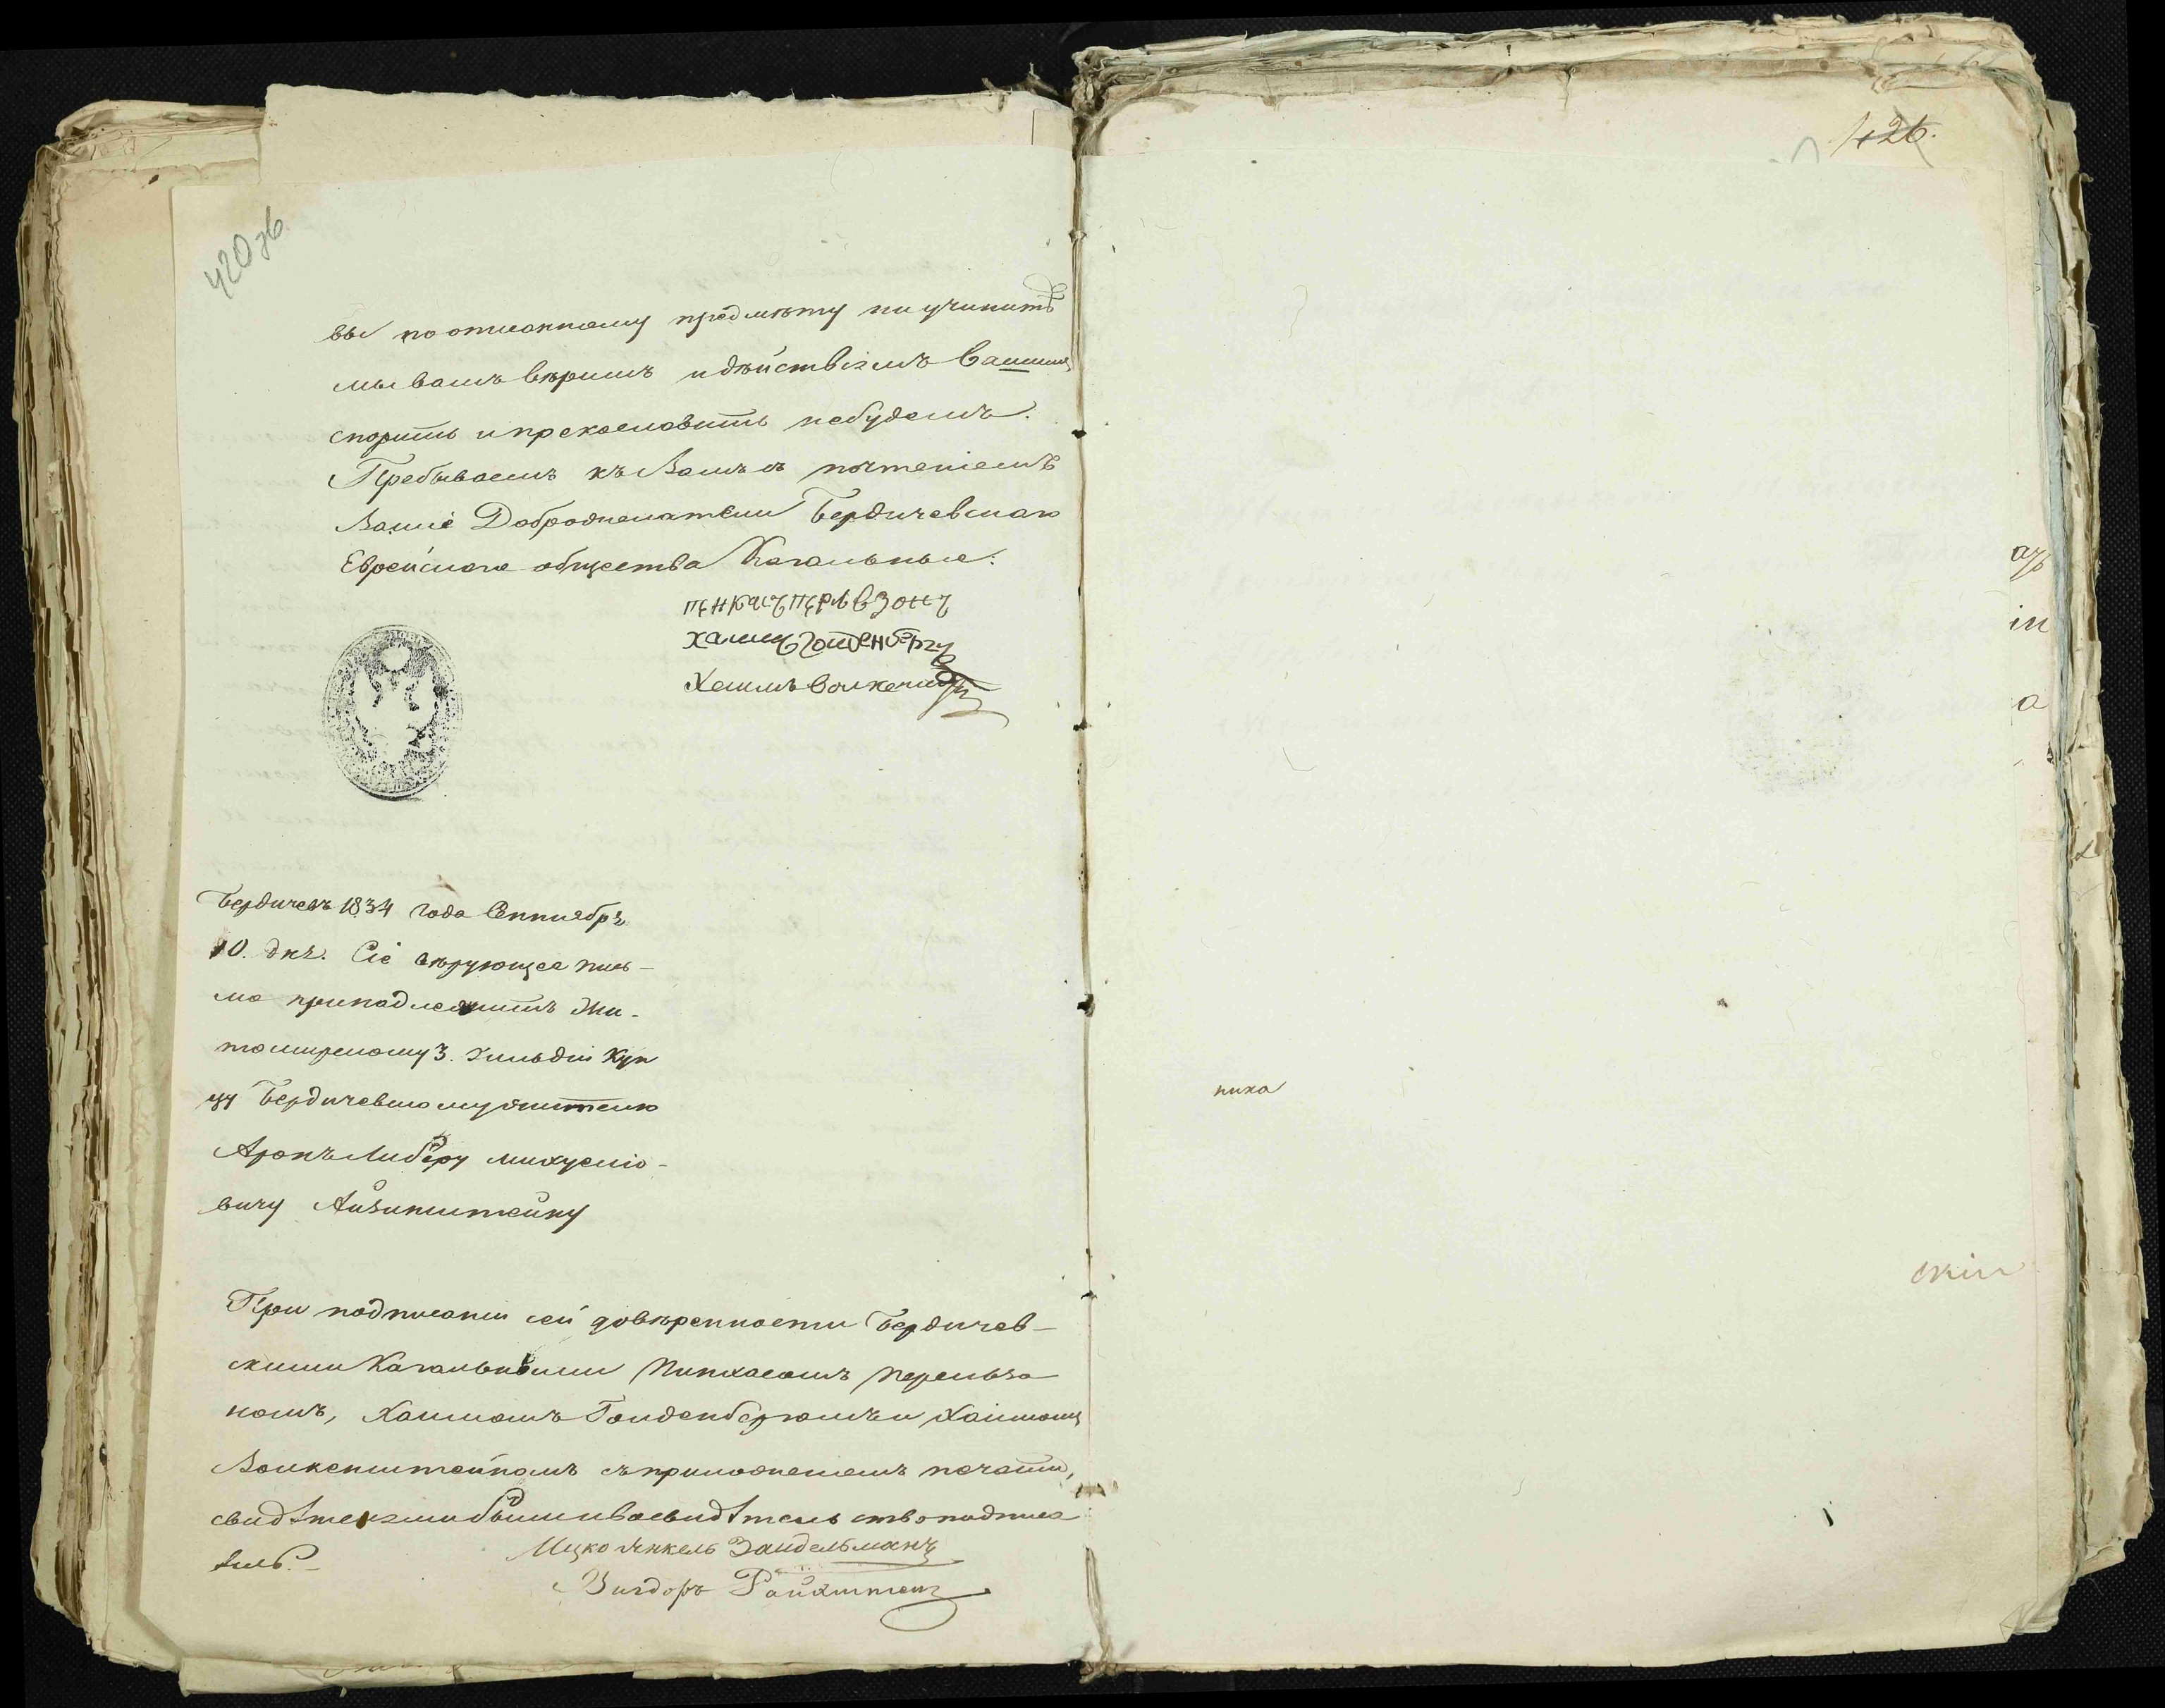 420 зв
вы по описанному предмѣту ни учините
мы вамъ вѣримъ и дѣйствіямъ Вашимъ
спорить и прекословить небудемъ.
Пребываемъ къ Вамъ съ почтеніемъ
Вашіе Доброжелатели Бердичевскаго
Еврейскаго общества Кагальные:
Хаимъ Голденбергъ
Бердичевъ 1834 года Сентября
10. дня. Сіе вѣрующее пись-
мо принадлежитъ Жи-
томирскому 3. гильдіи Куп
цу Бердичевскому жителю
Аронъ Либеру
вичу Айзинштейну
При подписаніи сей довѣренности Бердичев-
скими Кагальными Пинхасомъ Перельзо
номъ, Хаимомъ Голденбергомъ и Хаимомъ
Волкенштейномъ съ приложеніемъ печати,
свидѣтелями были и во свидѣтельство подписа
лись.
Ицко Янкель Зайдельманъ
Вигдоръ Райхштейн
426.
аз
ін
а
ника
скіи